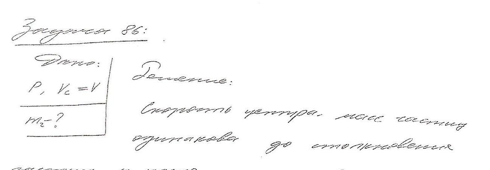 Задача 86:
Дано:
P, Vc = V
m₂-?
Решение:
Скорость центра масс частиц
одинакова до столкновения